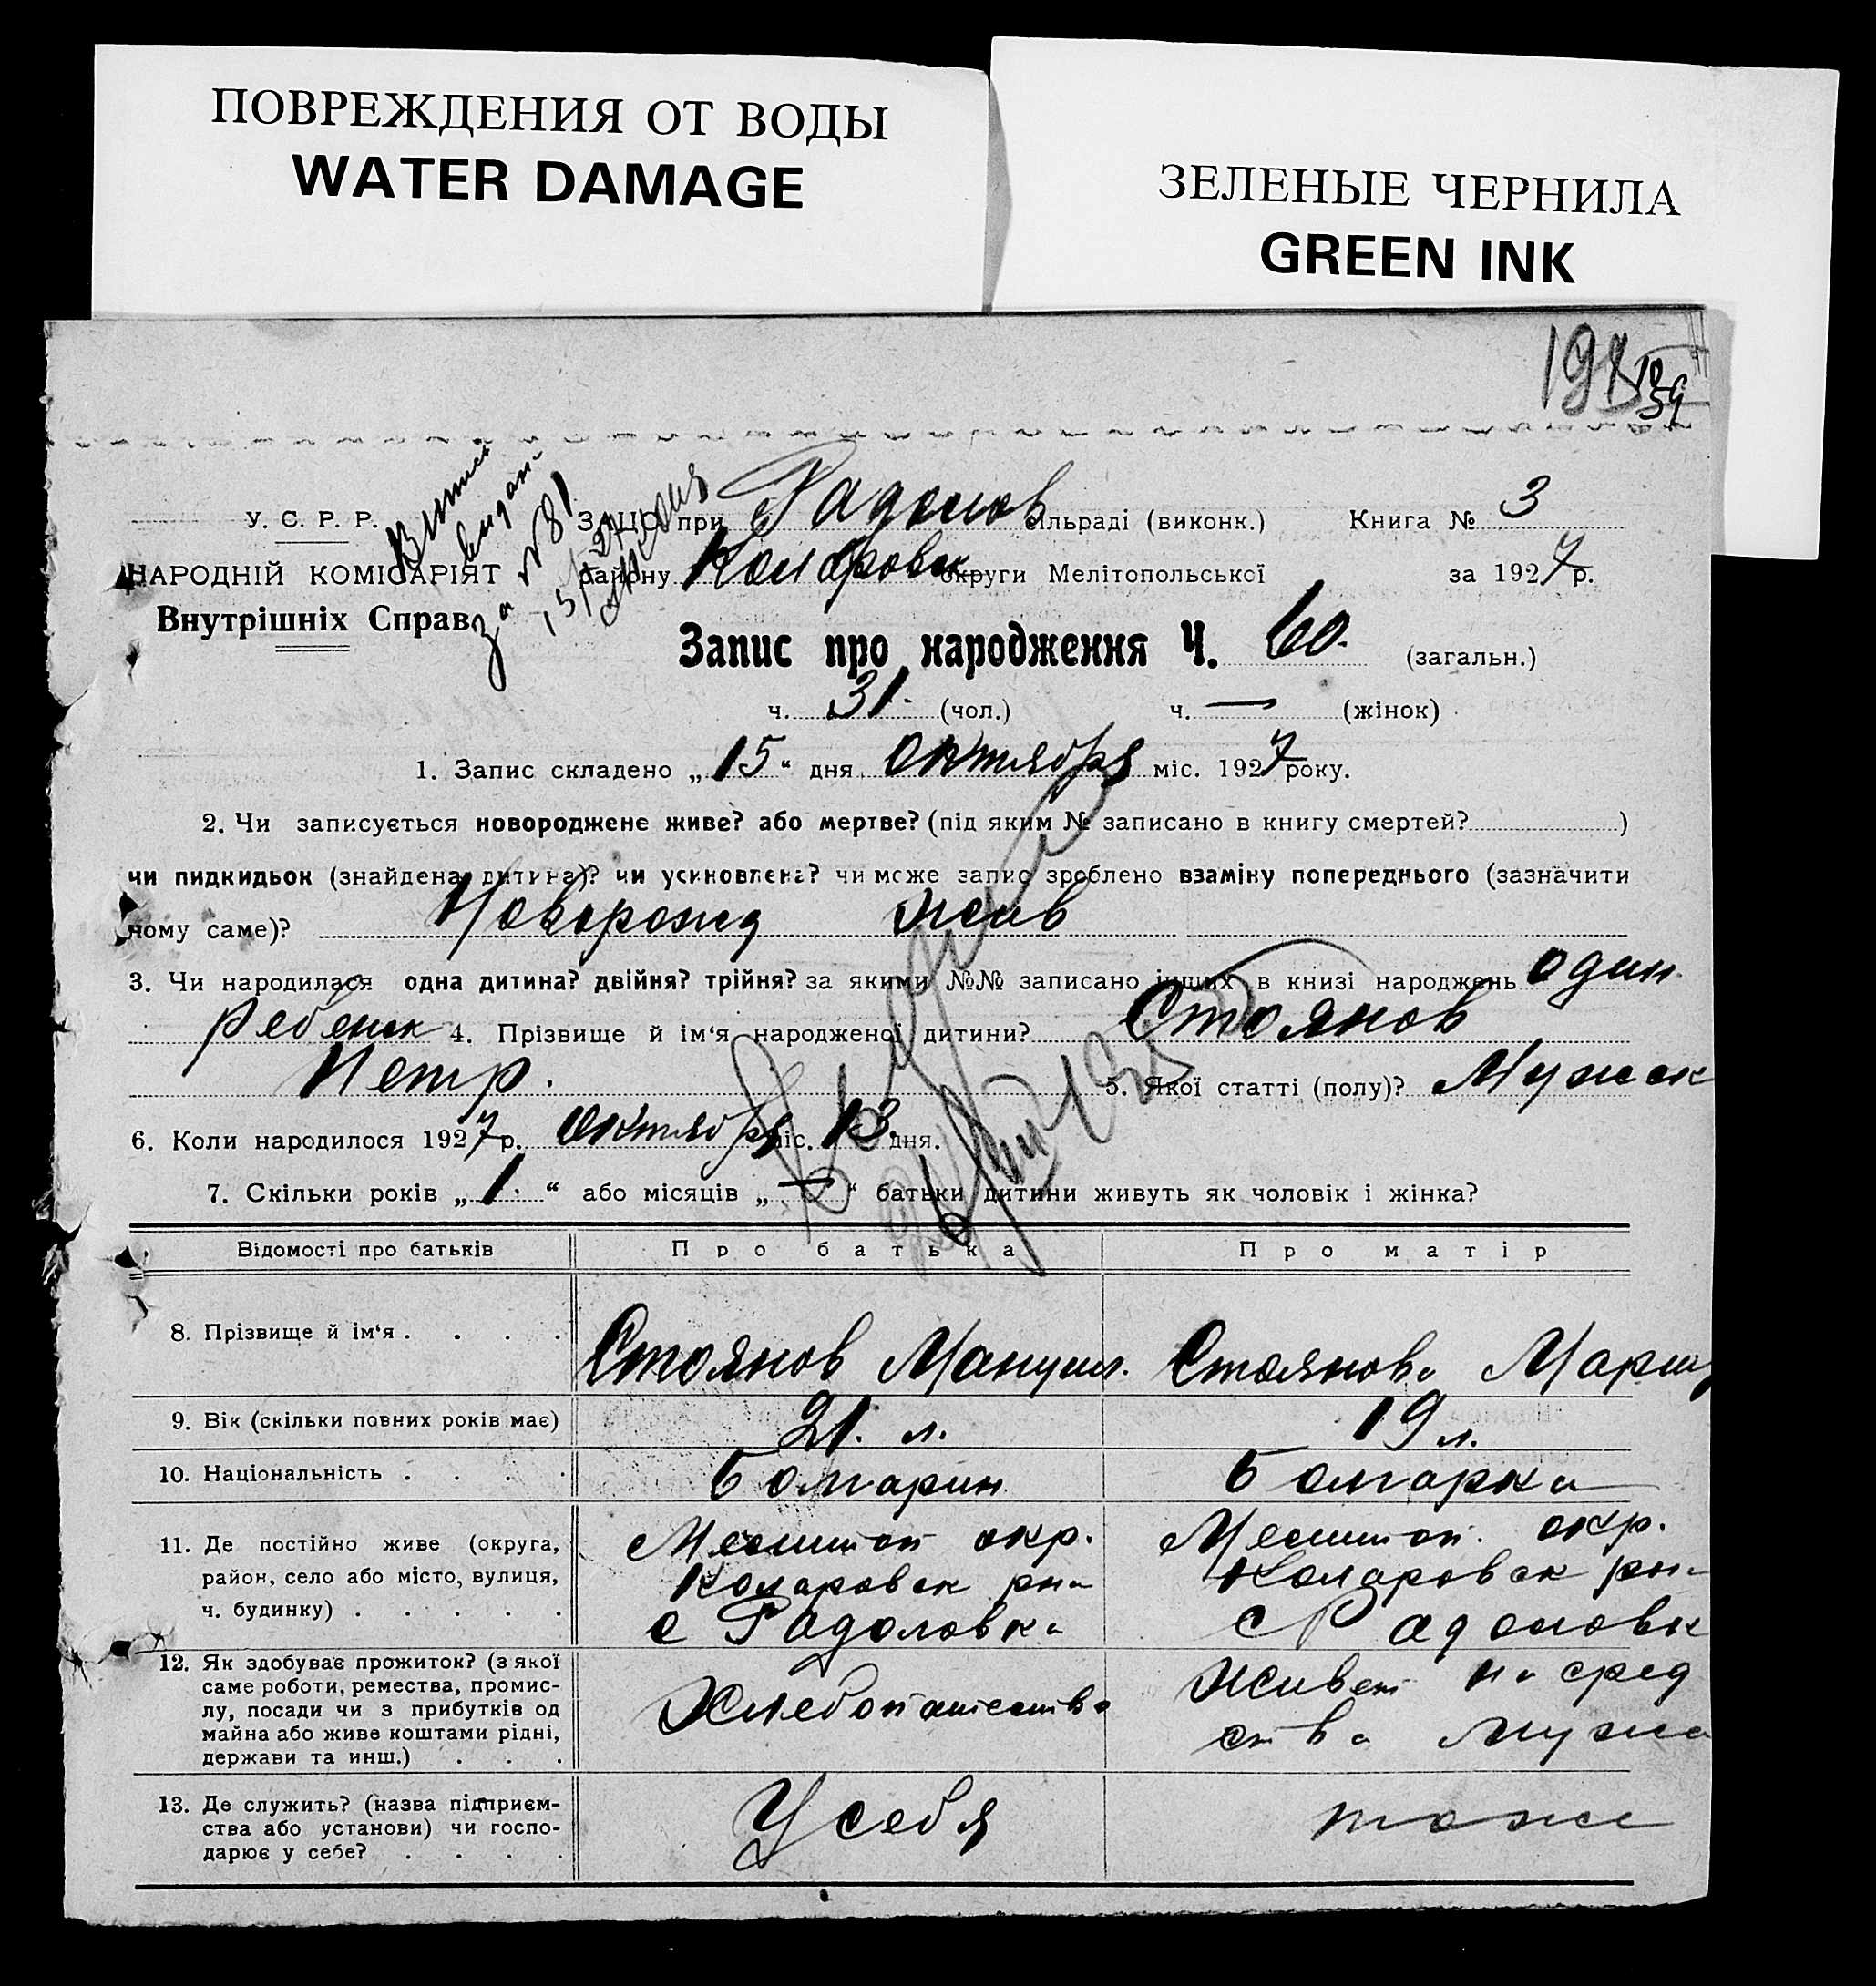 ПОВРЕЖДЕНИЯ ОТ ВОДЫ
WATER DAMAGE
ЗЕЛЕНЫЕ ЧЕРНИЛА
GREEN INK
У. С. Р. Р.
НАРОДНІЙ КОМІСАРІЯТ
Внутрішніх Справ
за № 81
ЗАЦС при Радолов сільраді (виконк.) Книга № 3
району Коларовск округи Мелітопольської за 1927 р.
Запис про народження Ч. 60. (загальн.)
ч. 31. (чол.) ч. — (жінок)
1. Запис складено „ 15 “ дня Октября міс. 1927 року.
2. Чи записується новороджене живе? або мертве? (під яким № записано в книгу смертей? )
чи пидкидьок (знайдена дитина)? чи усиновлена? чи може запис зроблено взаміну попереднього (зазначити
чому саме)?Новорожд жив
3. Чи народилася одна дитина? двійня? трійня? за якими №№ записано інших в книзі народжень один
ребенок 4. Прізвище й ім'я народженої дитини? Стоянов
Петр. 5. Якої статті (полу)? Мужск
6. Коли народилося 1927 р. Октября міс. 13 дня.
7. Скільки років „ 1. “ або місяців „ — “ батьки дитини живуть як чоловік і жінка?
Відомості про батьків Про батька Про матір
8. Прізвище й ім'я . . . . Стоянов Мануил. Стоянова Мария
9. Вік (скільки повних років має) 21. л. 19 л.
10. Національність . . . . Болгарин Болгарка
11. Де постійно живе (округа, Мелитоп окр. Мелитоп. окр.
район, село або місто, вулиця, Коларовск рна Коларовск рна
ч. будинку) . . . . . с Радоловка с Радоловк
12. Як здобуває прожиток? (з якої
саме роботи, ремества, промис- Живет на сред
лу, посади чи з прибутків од Хлебопашество
майна або живе коштами рідні, ства мужа
держави та инш.) . . .
13. Де служить? (назва підприєм-
ства або установи) чи госпо- У себя тоже
дарює у себе? . . . .